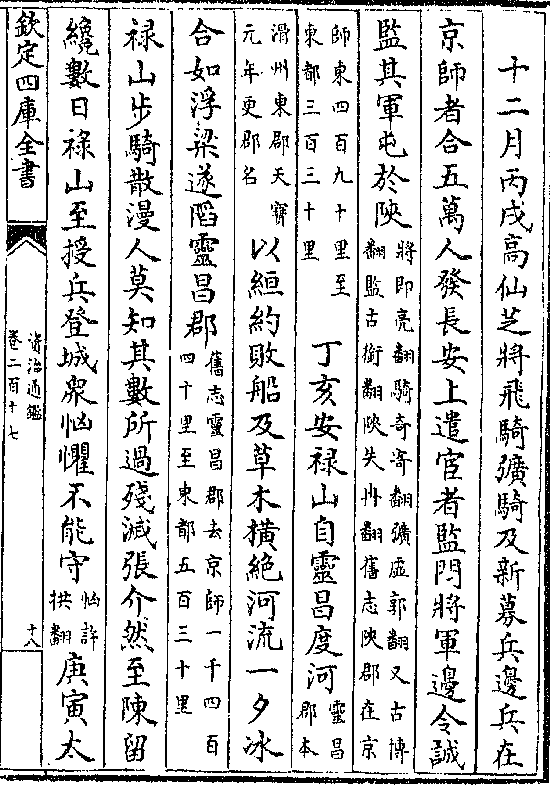 十二月丙戌高仙芝將飛騎彍騎及新募兵邊兵在
京師者合五萬人發長安上遣宦者監門將軍邊令誠
監其軍屯於陝將即亮翻騎奇寄翻彍虛郭翻又古博翻監古銜翻陝失冉翻舊志陝郡在京
師東四百九十里至東都三百三十里 丁亥安祿山自靈昌度河靈昌郡本
滑州東郡天寶元年更郡名以絙約敗船及草木橫絶河流一夕冰
合如浮梁遂䧟靈昌郡舊志靈昌郡去京師一千四百四十里至東都五百三十里
祿山步騎散漫人莫知其數所過殘滅張介然至陳留
纔數日祿山至授兵登城眾恟懼不能守恟許拱翻庚寅太
欽定四庫全書
資治通鑑
卷二百十七
十八